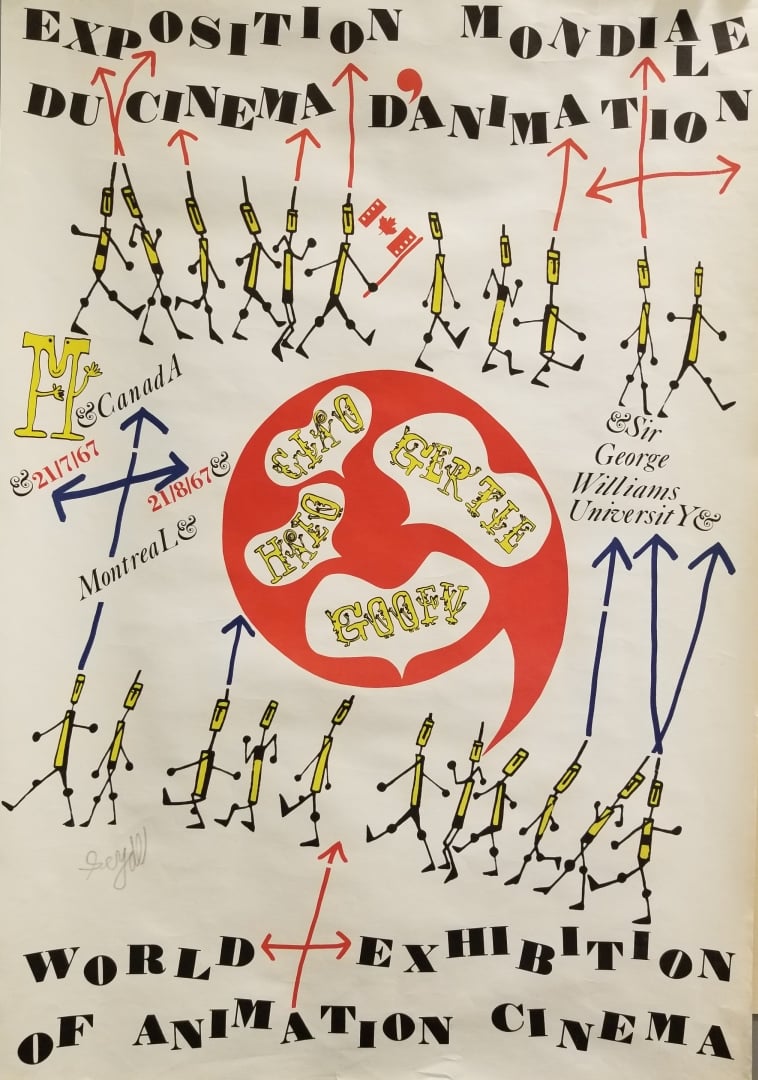 EXPOSITION MONDIALE
DU CINEMA D'ANIMATION
M
&CanadA
&21/7/67
21/8/67&
MontreaL&
CIAO
GERTIE
HALO
GOOFY
&Sir
George
Williams
UniversitY&
WORLD EXHIBITION
OF ANIMATION CINEMA